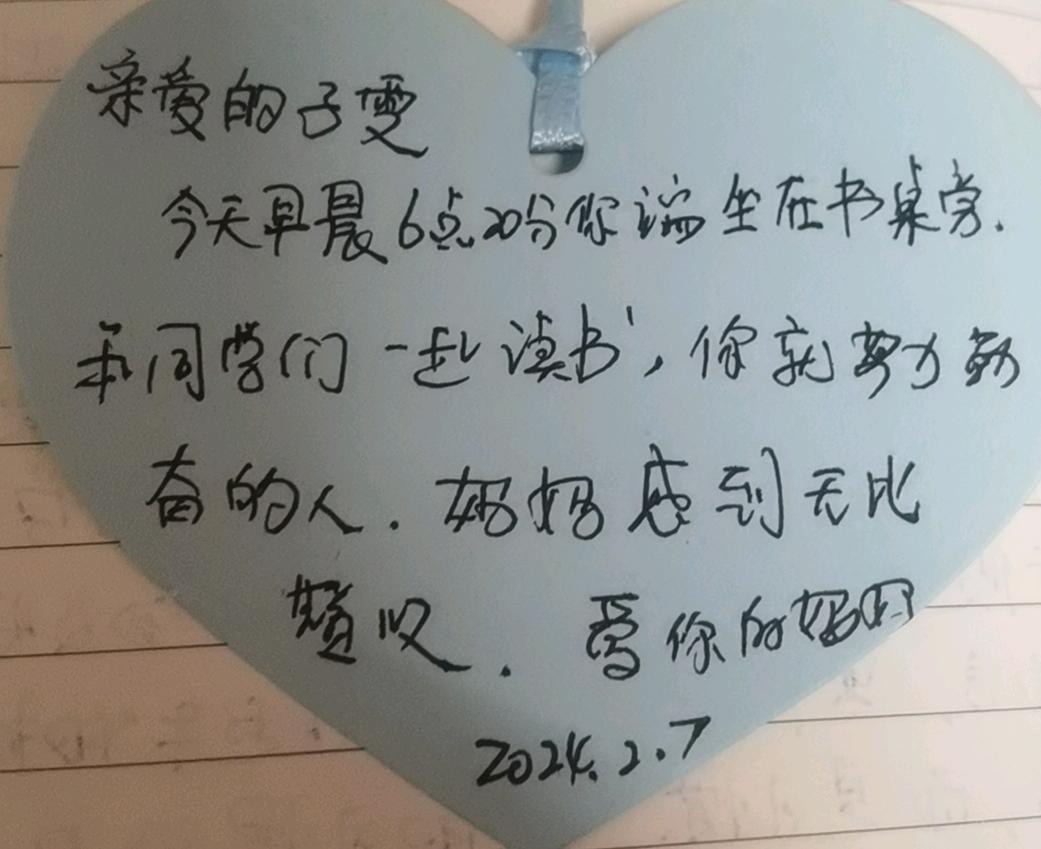 亲爱的子雯
今天早晨6点20分你端坐在书桌旁.
和同学们一起读书，你就努力勤
奋的人.妈妈感到无比
赞叹.爱你的妈妈
2024.2.7